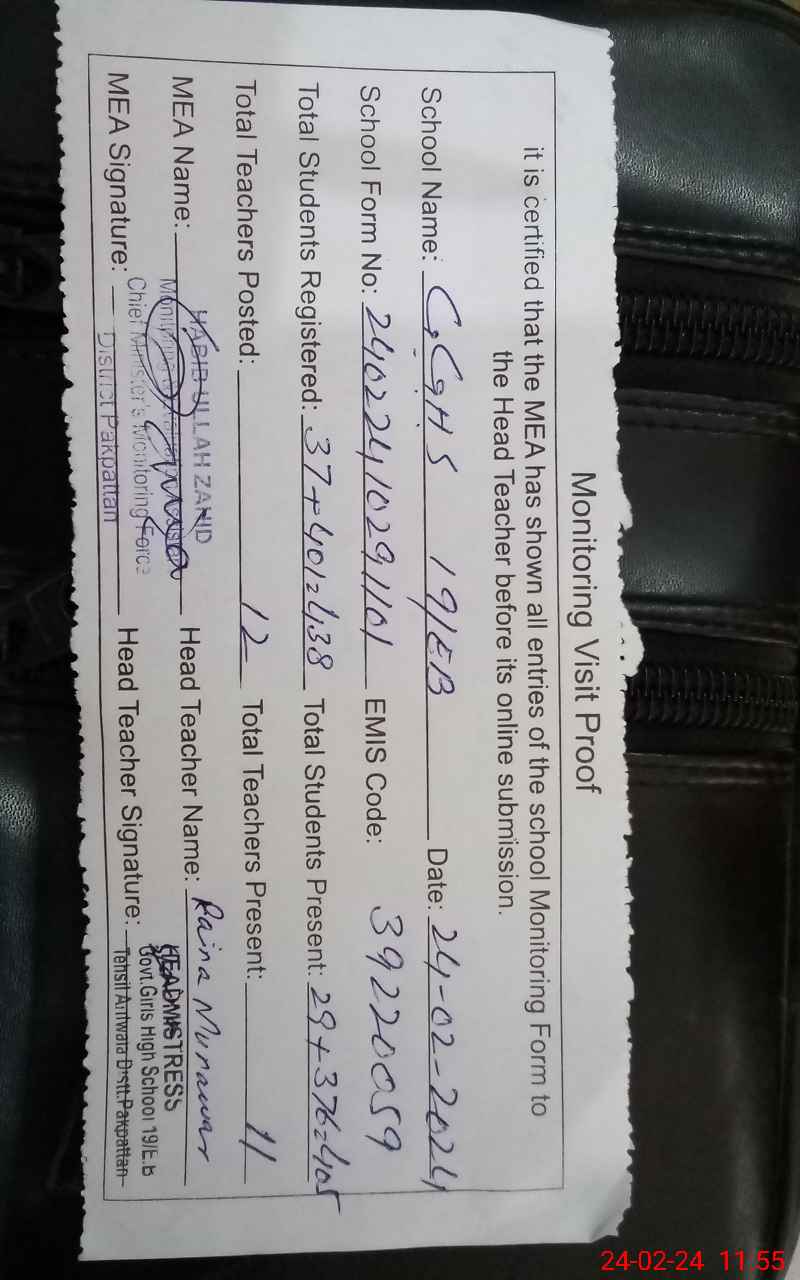 Monitoring Visit Proof
it is certified that the MEA has shown all entries of the school Monitoring Form to
the Head Teacher before its online submission.
School Name: GGHS 19/EB Date: 24-02-2024
School Form No: 24022410291101 EMIS Code: 39220059
Total Students Registered: 37+401=438 Total Students Present: 29+376=405
Total Teachers Posted: 12 Total Teachers Present: 11
MEA Name: HABIB ULLAH ZAHID Head Teacher Name: Raina Munawar
Monitoring
Chief Minister's Monitoring Force
District Pakpattan
MEA Signature: Head Teacher Signature:
HEADMISTRESS
Govt.Girls High School 19/E.b
Tehsil Arifwala Distt.Pakpattan
24-02-24 11:55